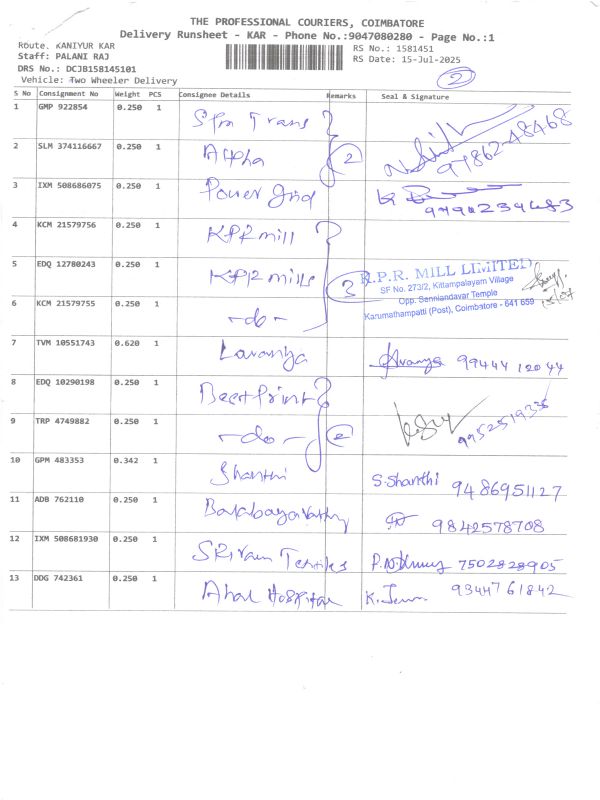 THE PROFESSIONAL COURIERS, COIMBATORE
Delivery Runsheet - KAR - Phone No.:9047080280 - Page No.:1
Route: KANIYUR KAR
RS No.: 1581451
Staff: PALANI RAJ
RS Date: 15-Jul-2025
DRS No.: DCJB158145101
Vehicle: Two Wheeler Delivery
2
S No Consignment No Weight PCS Consignee Details Remarks Seal & Signature
1 GMP 922854 0.250 1 Trans
2 SLM 374116667 0.250 1 Alpha 2 97862-48468
3 IXM 508686075 0.250 1 Power grid
4 KCM 21579756 0.250 1 KPR mill
5 EDQ 12780243 0.250 1 KPR mills 3 K.P.R. MILL LIMITED
SF No. 273/2, Kittampalayam Village
Opp. Senniandavar Temple
Karumathampatti (Post), Coimbatore - 641 659
15/07
6 KCM 21579755 0.250 1 -do-
7 TVM 10551743 0.620 1 Lavanya Lavanya 99444 12044
8 EDQ 10290198 0.250 1 Best Print
9 TRP 4749882 0.250 1 -do- 2
10 GPM 483353 0.342 1 Shanthi S.Shanthi 9486951127
11 ADB 762110 0.250 1 9842578708
12 IXM 508681930 0.250 1 SRIram Textiles 7502828905
13 DDG 742361 0.250 1 Hospital 9344761842